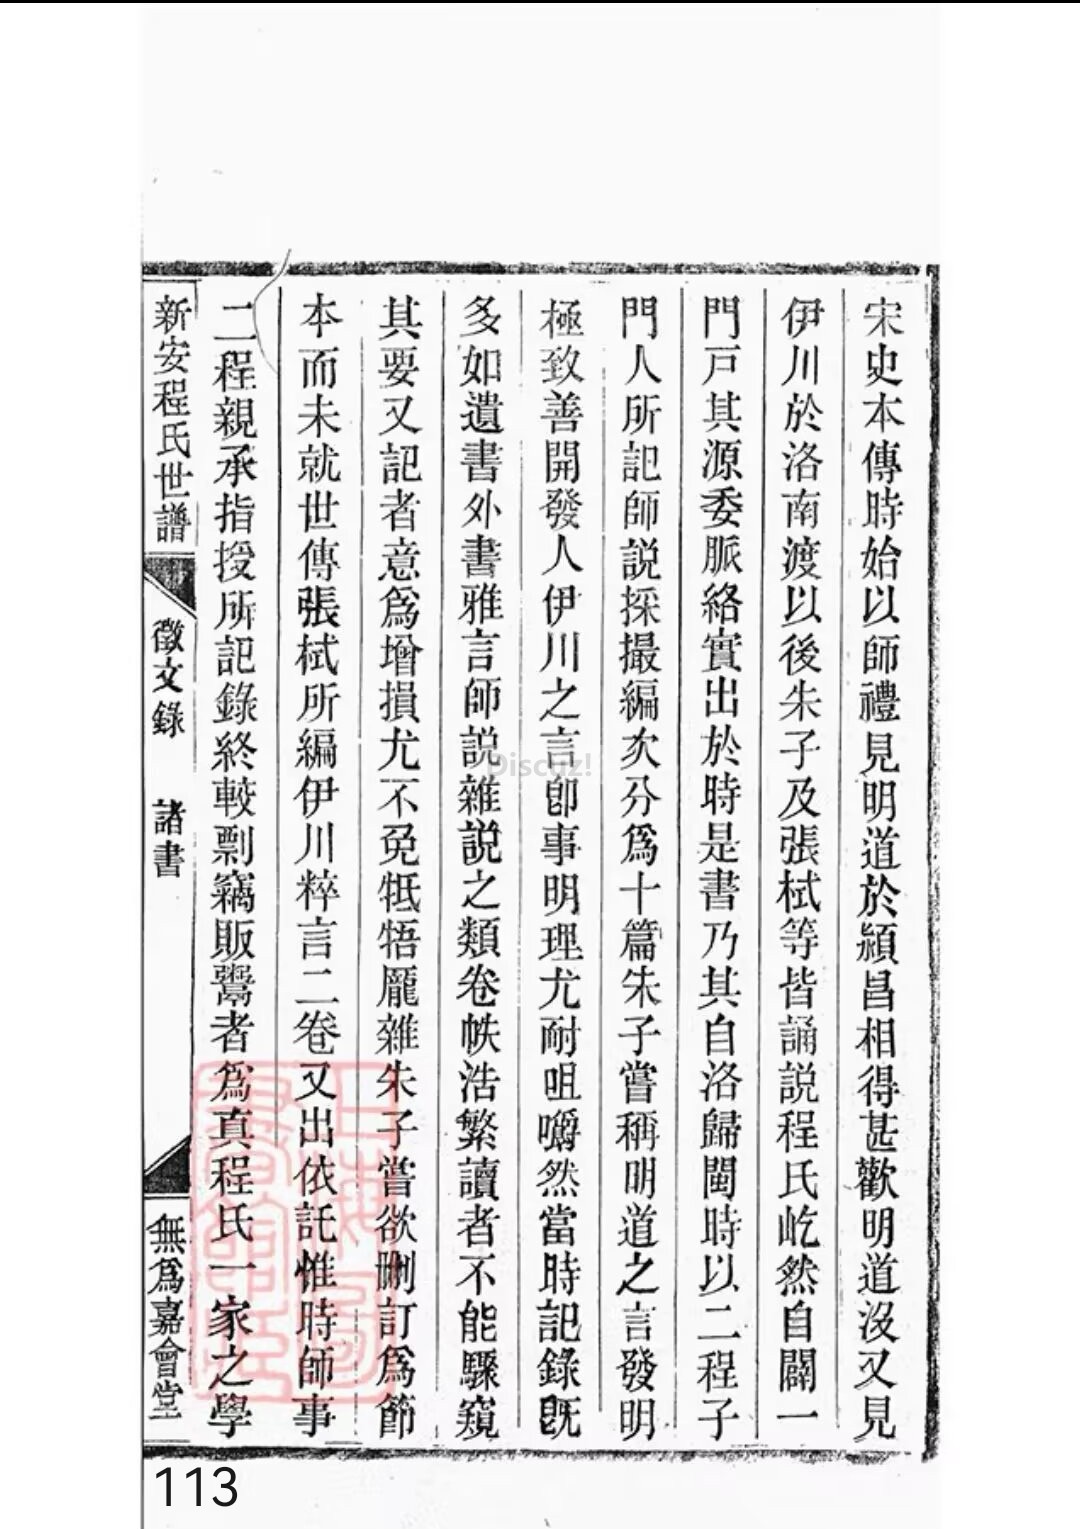 宋史本傳時始以師禮見明道於潁昌相得甚歡明道沒又見
伊川於洛南渡以後朱子及張栻等皆誦說程氏屹然自闢一
門戶其源委脈絡實出於時是書乃其自洛歸閩時以二程子
門人所記師說採撮編次分為十篇朱子嘗稱明道之言發明
極致善開發人伊川之言即事明理尤耐咀嚼然當時記錄既
多如遺書外書雅言師說雜說之類卷帙浩繁讀者不能驟窺
其要又記者意為增損尤不免牴牾龐雜朱子嘗欲刪訂為節
本而未就世傳張栻所編伊川粹言二卷又出依託惟時師事
二程親承指授所記錄終較剽竊販鬻者為真程氏一家之學
新安程氏世譜 徵文錄 諸書 無為嘉會堂
上海圖書館藏
Discuz!
113